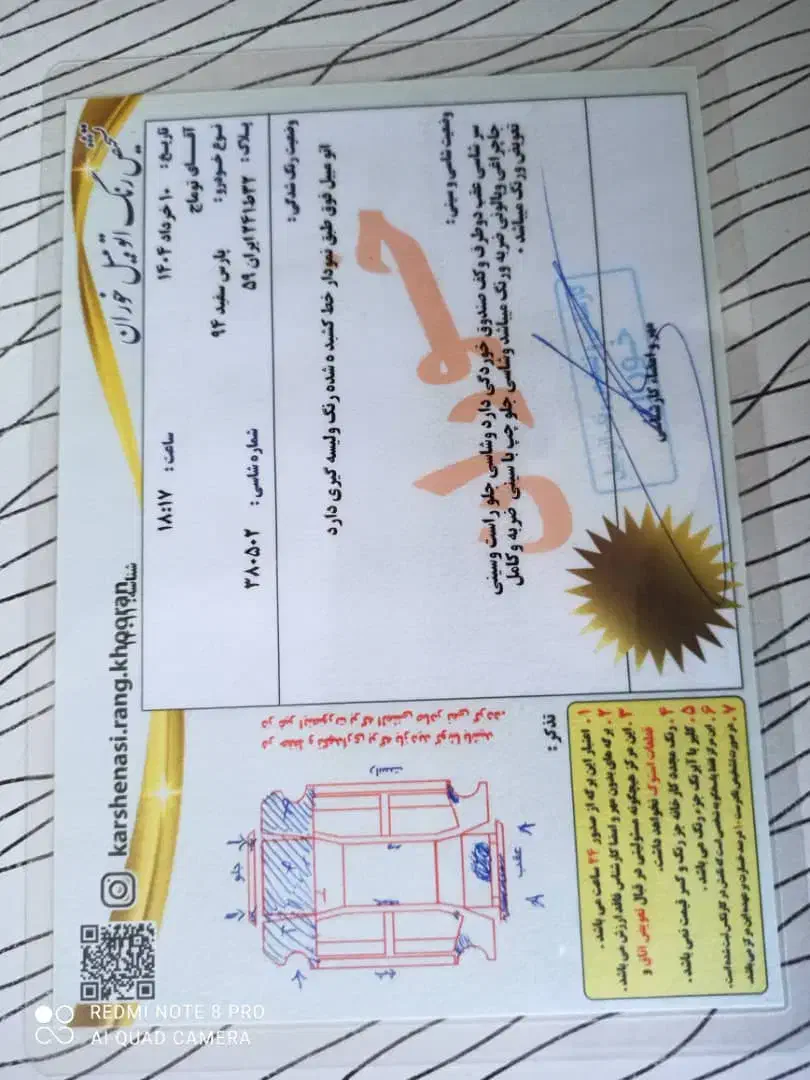 تشخیص رنگ اتومبیل خوران
karshenasi.rang.khooran
تاریخ: ۱۰ خرداد ۱۴۰۴
ساعت: ۱۸:۱۷
آقای توماج
نوع خودرو: پارس سفید ۹۴
شماره شاسی: ۳۸۰۵۰۲
پلاک: ۳۲ط۲۴۱ ایران ۵۹
وضعیت رنگ شدگی:
اتومبیل فوق طبق نمودار خط کشیده شده رنگ ولیسه گیری دارد
وضعیت شاسی و سینی:
سر شاسی عقب دو طرف وکف صندوق خوردگی دارد وشاسی جلو راست وسینی
جاچراغی وپالونی ضربه ورنگ میباشد وشاسی جلو چپ با سینی ضربه و کامل
تعویض ورنگ میباشد .
خوران
مهر و امضاء کارشناس
راست
جلو
عقب
تذکر:
۱. اعتبار این برگه از صدور ۲۴ ساعت می باشد .
۲. برگه های بدون مهر و امضا کارشناس فاقد ارزش می باشد .
۳. این مرکز هیچگونه مسئولیتی در قبال تعویض اتاق و
قطعات استوک نخواهد داشت.
۴. رنگ مجدد کارخانه جز رنگ و کسر قیمت نمی باشد .
۵. گلیر یا آبرنگ جزء رنگ می باشد .
REDMI NOTE 8 PRO
AI QUAD CAMERA